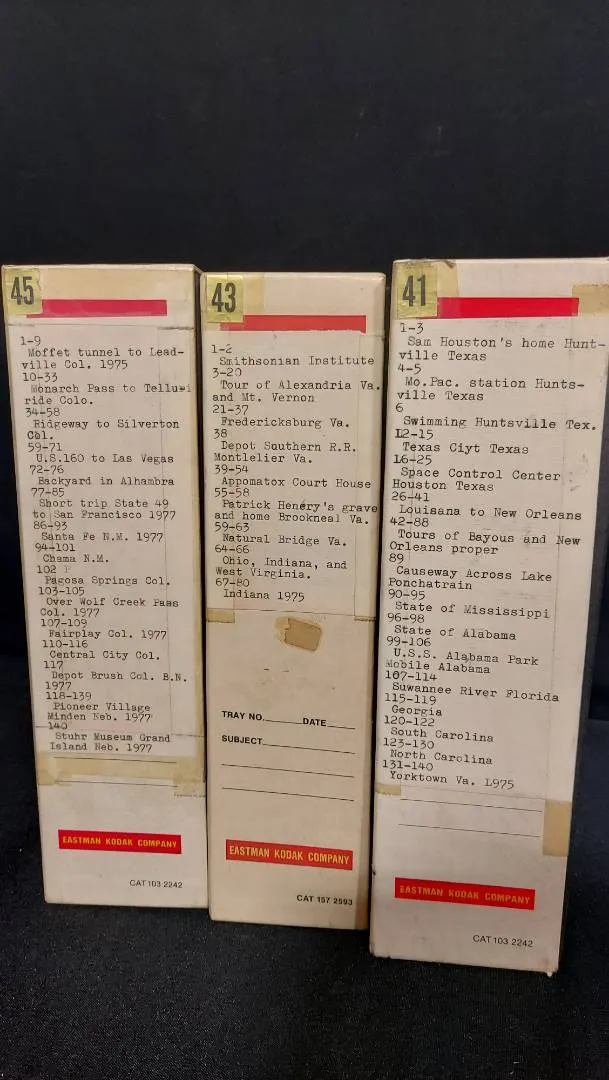 45
1-9
Moffet tunnel to Lead-
ville Col. 1975
10-33
Monarch Pass to Tellusi
ride Colo.
34-58
Ridgeway to Silverton
Col.
59-71
U.S.160 to Las Vegas
72-76
Backyard in Alhambra
77-85
Short trip State 49
to San Francisco 1977
86-93
Santa Fe N.M. 1977
94-101
Chama N.M.
102
Pagosa Springs Col.
103-105
Over Wolf Creek Pass
Col. 1977
107-109
Fairplay Col. 1977
110-116
Central City Col.
117
Depot Brush Col. B.N.
1977
118-139
Pioneer Village
Minden Neb. 1977
140
Stuhr Museum Grand
Island Neb. 1977
EASTMAN KODAK COMPANY
CAT 103 2242
43
1-2
Smithsonian Institute
3-20
Tour of Alexandria Va.
and Mt. Vernon
21-37
Fredericksburg Va.
38
Depot Southern R.R.
Montlelier Va.
39-54
Appomatox Court House
55-58
Patrick Henery's grave
and home Brookneal Va.
59-63
Natural Bridge Va.
64-66
Ohio, Indiana, and
West Virginia.
67-80
Indiana 1975
TRAY NO. DATE
SUBJECT
EASTMAN KODAK COMPANY
CAT 157 2593
41
1-3
Sam Houston's home Hunt-
ville Texas
4-5
Mo.Pac. station Hunts-
ville Texas
6
Swimming Huntsville Tex.
12-15
Texas Ciyt Texas
16-25
Space Control Center
Houston Texas
26-41
Louisana to New Orleans
42-88
Tours of Bayous and New
Orleans proper
89
Causeway Across Lake
Ponchatrain
90-95
State of Mississippi
96-98
State of Alabama
99-106
U.S.S. Alabama Park
Mobile Alabama
107-114
Suwannee River Florida
115-119
Georgia
120-122
South Carolina
123-130
North Carolina
131-140
Yorktown Va. 1975
EASTMAN KODAK COMPANY
CAT 103 2242